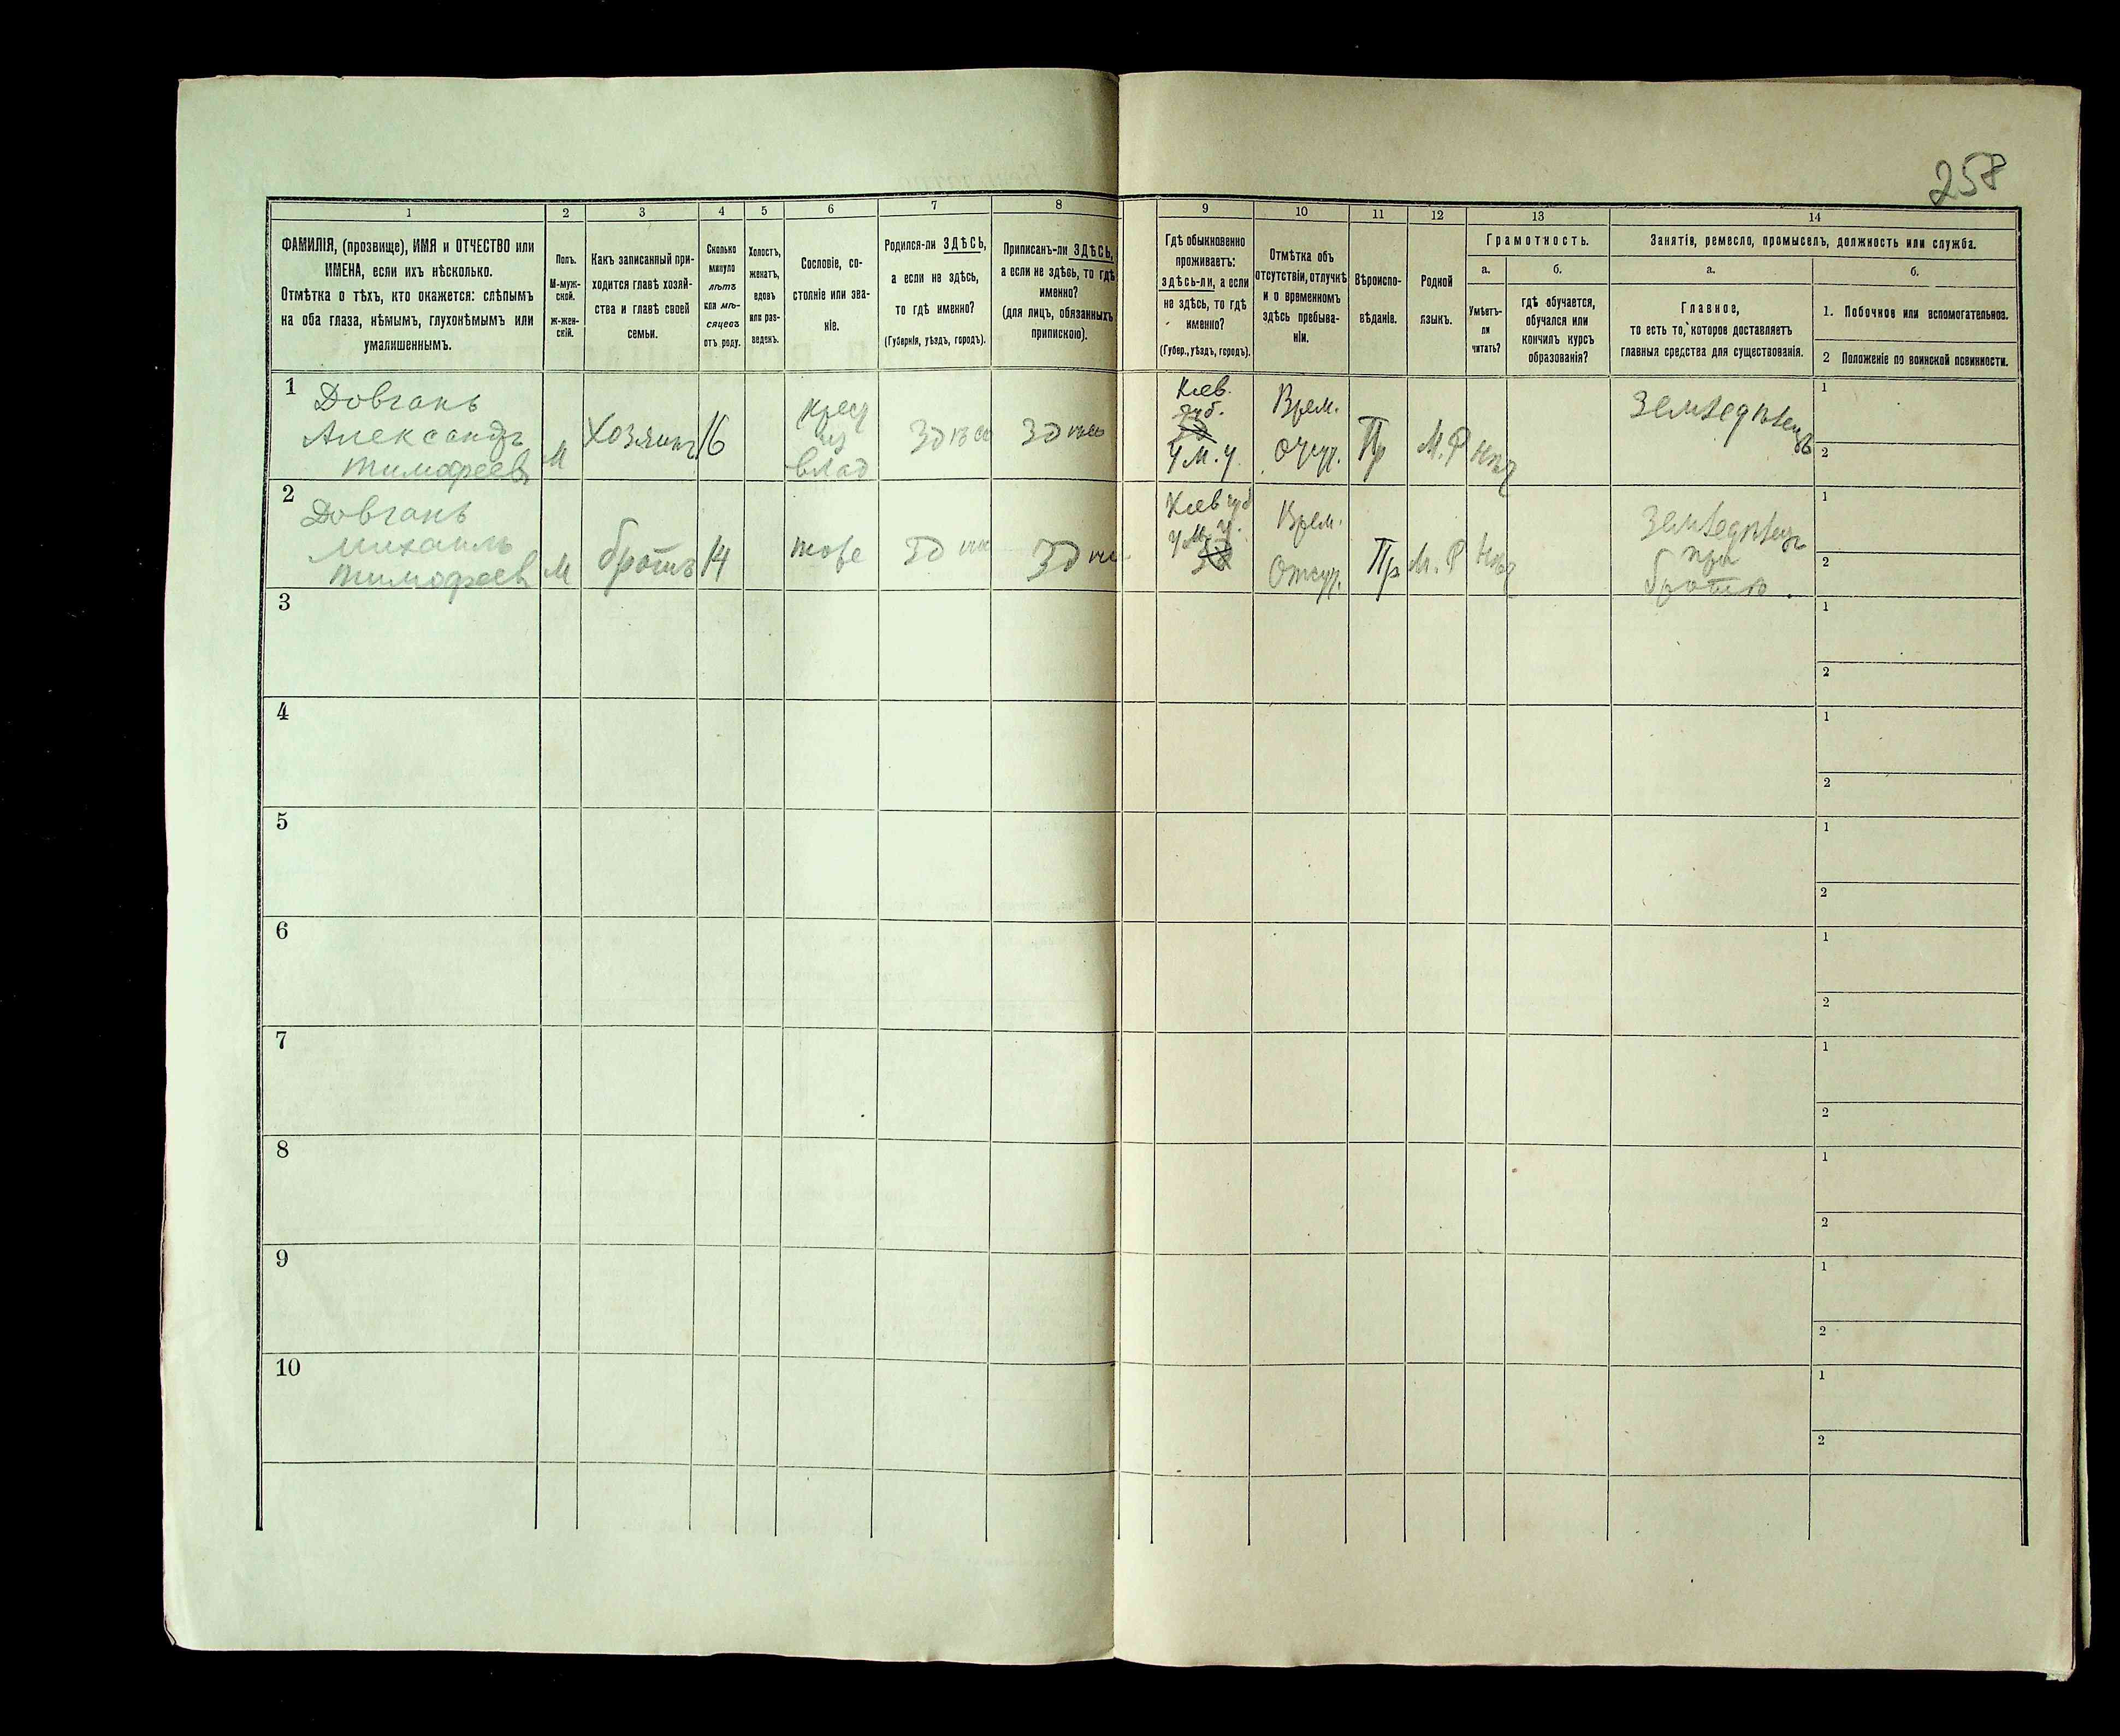 258
1 2 3 4 5 6 7 8 9 10 11 12 13 14
ФАМИЛІЯ, (прозвище), ИМЯ и ОТЧЕСТВО или
ИМЕНА, если ихъ нѣсколько.
Отмѣтка о тѣхъ, кто окажется: слѣпымъ
на оба глаза, нѣмымъ, глухонѣмымъ или
умалишеннымъ.
Полъ.
М-муж-
ской.
ж-жен-
скій.
Какъ записанный при-
ходится главѣ хозяй-
ства и главѣ своей
семьи.
Сколько
минуло
лѣтъ
или мѣ-
сяцевъ
отъ роду.
Холостъ,
женатъ,
вдовъ
или раз-
веденъ.
Сословіе, со-
стояніе или зва-
ніе.
Родился-ли ЗДѢСЬ,
а если не здѣсь,
то гдѣ именно?
(Губернія, уѣздъ, городъ).
Приписанъ-ли ЗДѢСЬ,
а если не здѣсь, то гдѣ
именно?
(для лицъ, обязанныхъ
припискою).
Гдѣ обыкновенно
проживаетъ:
здѣсь-ли, а если
не здѣсь, то гдѣ
именно?
(Губер., уѣздъ, городъ).
Отмѣтка объ
отсутствіи, отлучкѣ
и о временномъ
здѣсь пребыва-
ніи.
Вѣроиспо-
вѣданіе.
Родной
языкъ.
Грамотность.
а.
Умѣетъ-
ли
читать?
б.
гдѣ обучается,
обучался или
кончилъ курсъ
образованія?
Занятія, ремесло, промыселъ, должность или служба.
а.
Главное,
то есть то, которое доставляетъ
главныя средства для существованія.
б.
1. Побочное или вспомогательное.
2 Положеніе по воинской повинности.
1
Довгань
Александръ
Тимофеевъ
М
Хозяинъ
16
крест
из
влад
Здѣсь
Здѣсь
Кіев.
губ.
Ум. у.
Врем.
Отсут.
Пр
М.Р
Нѣт
Земледѣлецъ
1
2
2
Довгань
Михаилъ
Тимофеевъ
М
братъ
14
тоже
Здѣсь
Здѣсь
Кіев губ
Ум. у.
Врем.
Отсут.
Пр
М.Р
Нѣт
Земледѣлецъ
при
братѣ.
1
2
3
1
2
4
1
2
5
1
2
6
1
2
7
1
2
8
1
2
9
1
2
10
1
2